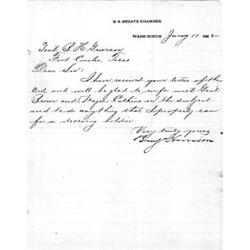 U.S. SENATE CHAMBER
WASHINGTON Jany 11 1882
Genl B H Grierson
Fort Concho, Texas
Dear Sir:
I have received your letter of the
and will be glad to confer with Genl
and Major on the subject
and to do anything that I properly can
for a deserving soldier
Very truly yours
Benj Harrison